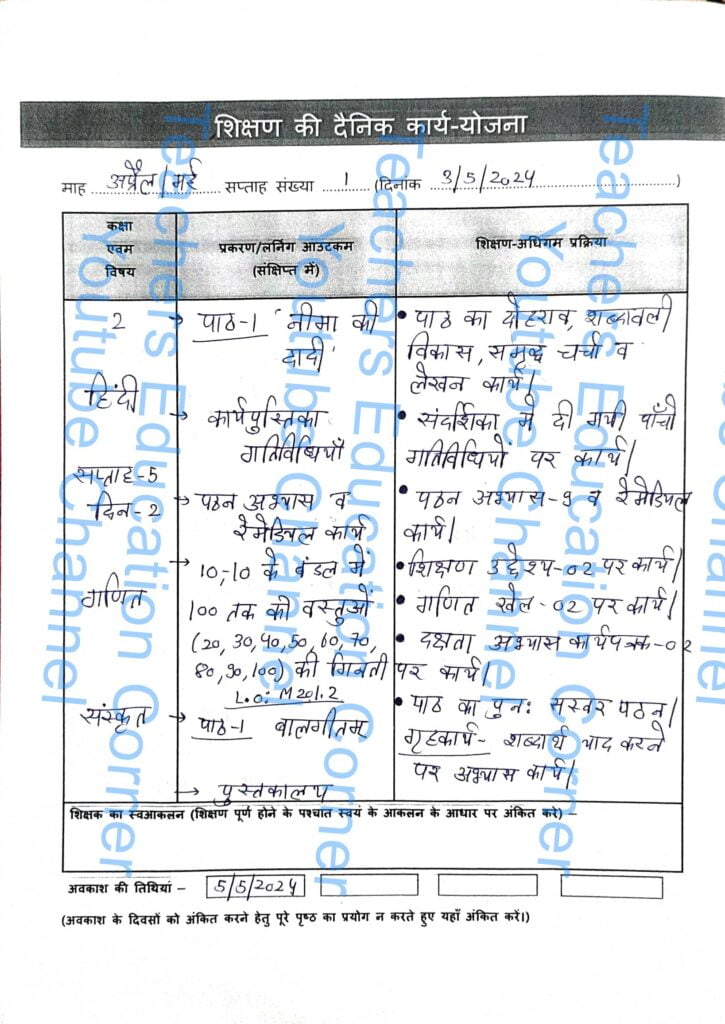 शिक्षण की दैनिक कार्य-योजना
माह अप्रैल/मई सप्ताह संख्या 1 (दिनांक 3/5/2024)
कक्षा एवम विषय
प्रकरण/लर्निंग आउटकम (संक्षिप्त में)
शिक्षण-अधिगम प्रक्रिया
2
हिंदी
सप्ताह-5
दिन-2
→ पाठ-1 'नीमा की
दादी'
→ कार्यपुस्तिका
गतिविधियाँ
→ पठन अभ्यास व
रेमेडियल कार्य
• पाठ का दोहराव, शब्दावली
विकास, समृद्ध चर्चा व
लेखन कार्य|
• संदर्शिका में दी गयी पाँचो
गतिविधियों पर कार्य|
• पठन अभ्यास-9 व रेमेडियल
कार्य|
गणित
→ 10,-10 के बंडल में
100 तक की वस्तुओं
(20, 30, 40, 50, 60, 70,
80, 90, 100) की गिनती
L.O: M201.2
• शिक्षण उद्देश्य-02 पर कार्य|
• गणित खेल-02 पर कार्य|
• दक्षता अभ्यास कार्यपत्रक-02
पर कार्य|
संस्कृत
→ पाठ-1 बालगीतम्
→ पुस्तकालय
• पाठ का पुनः सस्वर पठन|
गृहकार्य- शब्दार्थ याद करने
पर अभ्यास कार्य|
शिक्षक का स्वआकलन (शिक्षण पूर्ण होने के पश्चात स्वयं के आकलन के आधार पर अंकित करे) –
अवकाश की तिथियां – 5/5/2024
(अवकाश के दिवसों को अंकित करने हेतु पूरे पृष्ठ का प्रयोग न करते हुए यहाँ अंकित करें।)
Teachers Education Corner
Youtube Channel
Teachers Education Corner
Youtube Channel
Teachers Education Corner
Youtube Channel